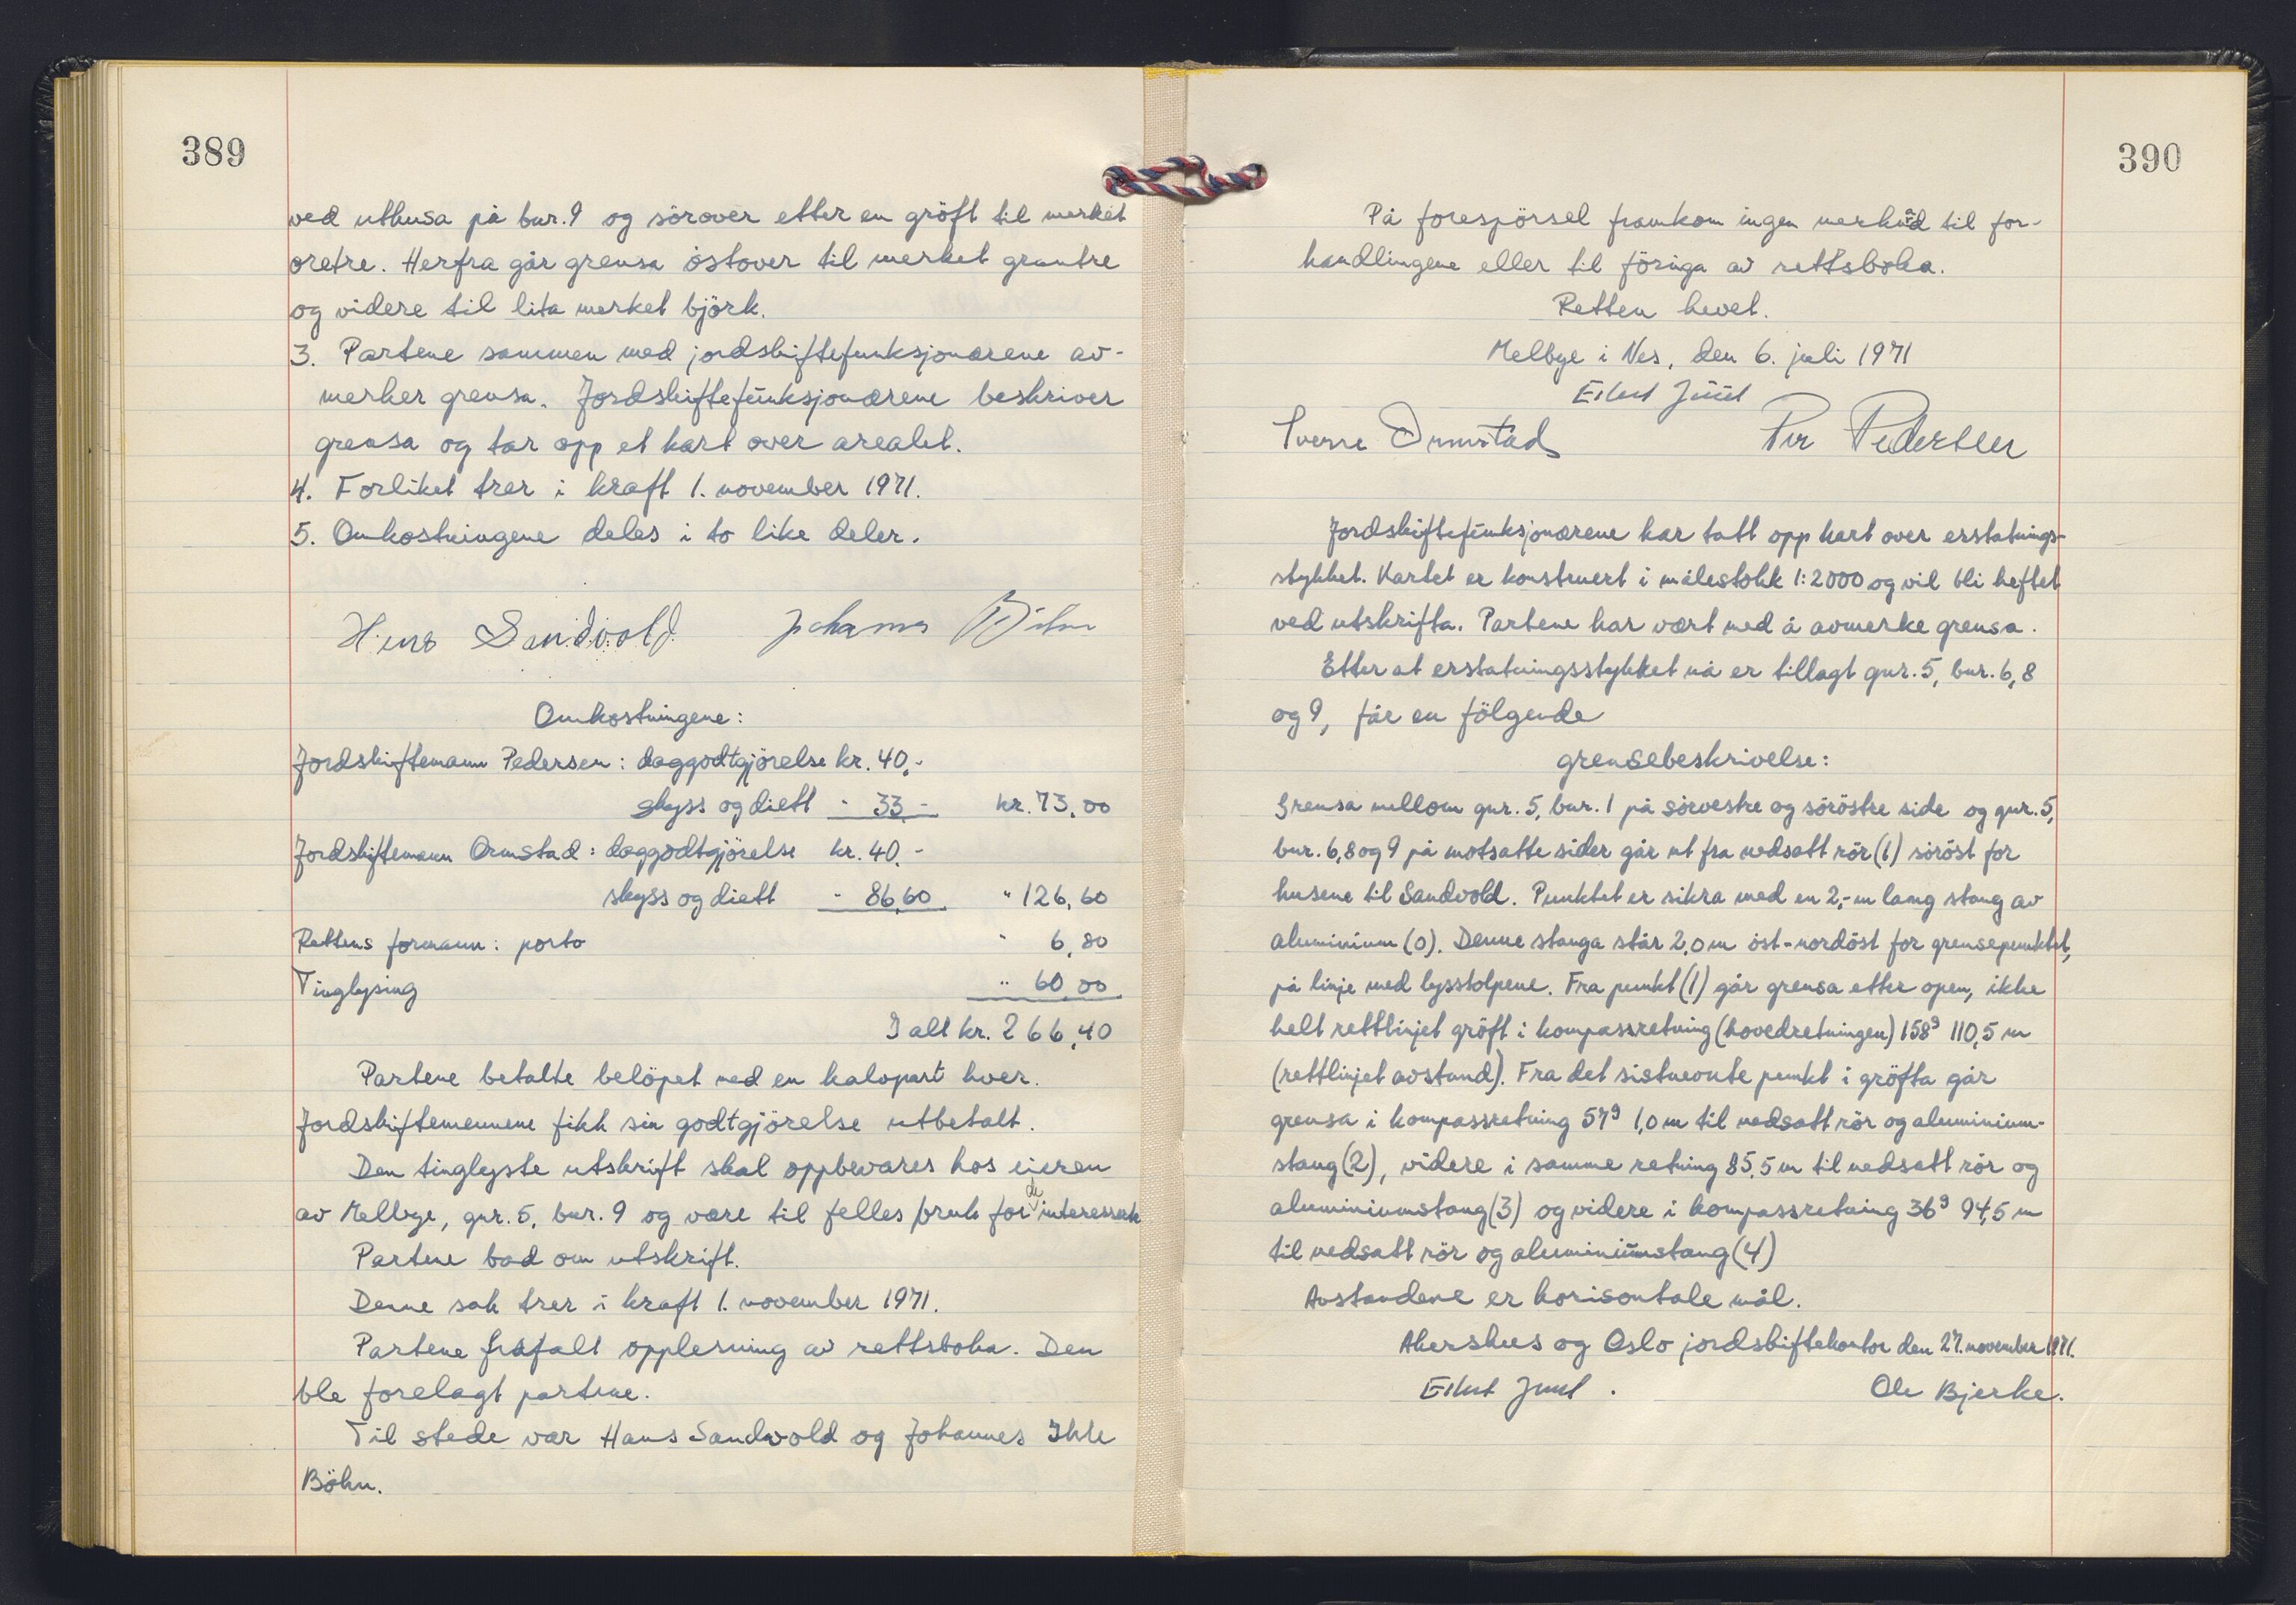 389
ved uthusa på bnr. 9 og sörover etter en gröft til merket
oretre. Herfra går grensa östover til merket grantre
og videre til lita merket björk.
3. Partene sammen med jordskiftefunksjonærene av-
merker grensa. Jordskiftefunksjonærene beskriver
grensa og tar opp et kart over arealet.
4. Forliket trer i kraft 1. november 1971.
5. Omkostningene deles i to like deler.
Hans Sandvold. Johannes Böhn
Omkostningene:
Jordskiftemann Pedersen: daggodtgjörelse kr. 40,-
skyss og diett - 33,- kr. 73,00
Jordskiftemann Ormstad: daggodtgjörelse kr. 40,-
skyss og diett - 86,60 " 126,60
Rettens formann: porto " 6,80
Tinglysing " 60,00
I alt kr. 266,40
Partene betalte belöpet med en halvpart hver.
Jordskiftemennene fikk sin godtgjörelse utbetalt.
Den tinglyste utskrift skal oppbevares hos eieren
av Melbye, gnr. 5, bnr. 9 og være til felles bruk for de interesserte
Partene bad om utskrift.
Denne sak trer i kraft 1. november 1971.
Partene frafalt opplesning av rettsboka. Den
ble forelagt partene.
Til stede var Hans Sandvold og Johannes Ihle
Böhn.
390
På forespörsel framkom ingen merknad til for-
handlingene eller til föringa av rettsboka.
Retten hevet.
Melbye i Nes, den 6. juli 1971
Eilert Juul
Sverre Ormstad Per Pedersen
Jordskiftefunksjonærene har tatt opp kart over erstatnings-
stykket. Kartet er konstruert i målestokk 1:2000 og vil bli heftet
ved utskrifta. Partene har vært med å avmerke grensa.
Etter at erstatningsstykket nå er tillagt gnr. 5, bnr. 6, 8
og 9, får en fölgende
grensebeskrivelse:
Grensa mellom gnr. 5, bnr. 1 på sörvestre og söröstre side og gnr. 5,
bnr. 6, 8 og 9 på motsatte sider går ut fra nedsatt rör (1) söröst for
husene til Sandvold. Punktet er sikra med en 2,-m lang stang av
aluminium (0). Denne stanga står 2,0 m öst-nordöst for grensepunktet,
på linje med lysstolpene. Fra punkt (1) går grensa etter open, ikke
helt rettlinjet gröft i kompassretning (hovedretningen) 158g 110,5 m
(rettlinjet avstand). Fra det sistnevnte punkt i gröfta går
grensa i kompassretning 57g 1,0 m til nedsatt rör og aluminium-
stang (2), videre i samme retning 85,5 m til nedsatt rör og
aluminiumstang (3) og videre i kompassretning 36g 94,5 m
til nedsatt rör og aluminiumstang (4)
Avstandene er horisontale mål.
Akershus og Oslo jordskiftekontor den 27. november 1971.
Eilert Juul. Ole Bjerke.